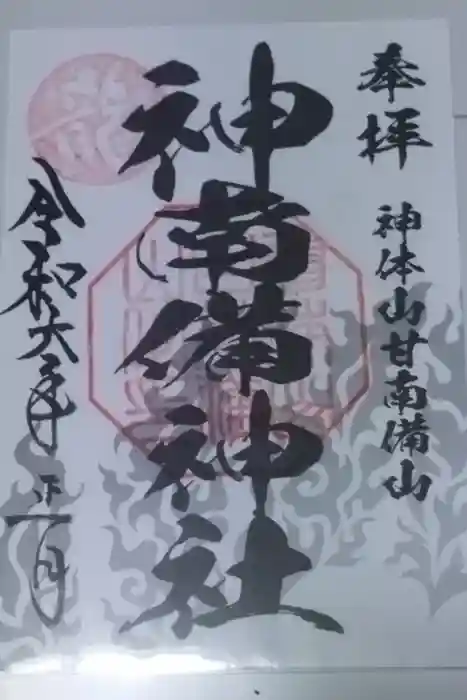 奉拝
神体山甘南備山
神南備神社
令和六年
正月
龍